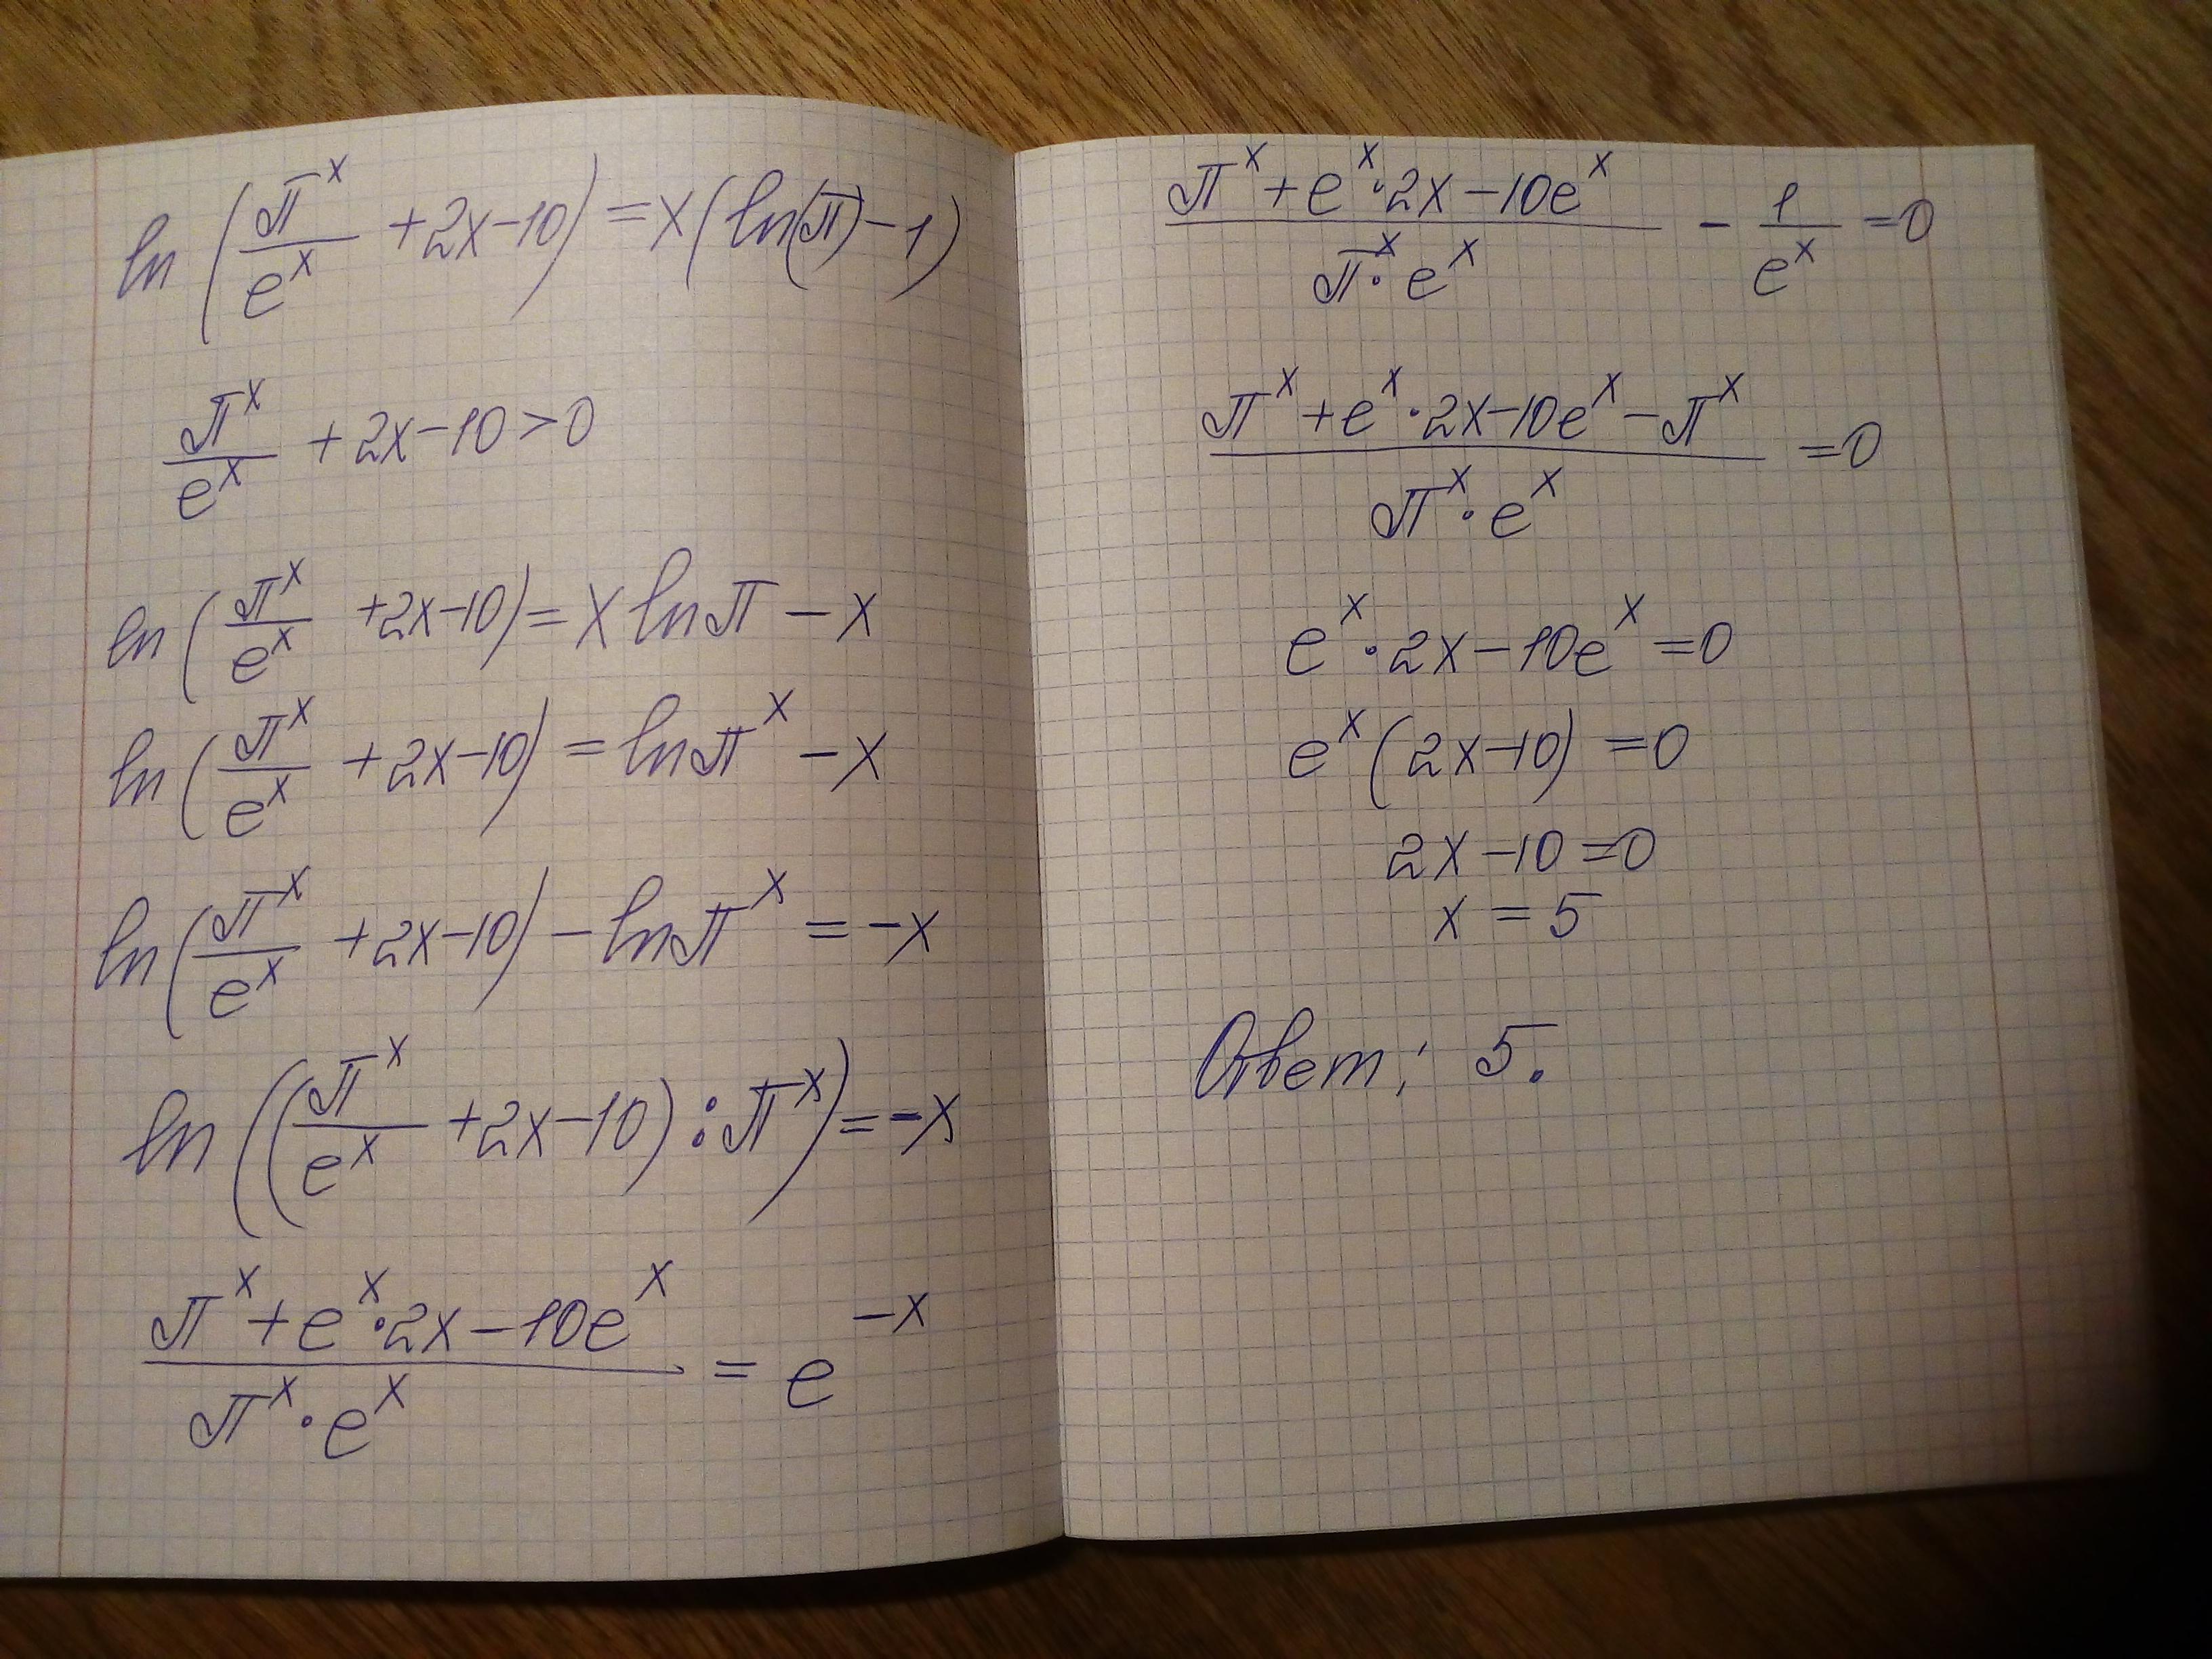 ln(π^x/e^x + 2x - 10) = x(ln(π) - 1)
π^x/e^x + 2x - 10 > 0
ln(π^x/e^x + 2x - 10) = x ln π - x
ln(π^x/e^x + 2x - 10) = ln π^x - x
ln(π^x/e^x + 2x - 10) - ln π^x = -x
ln((π^x/e^x + 2x - 10) : π^x) = -x
(π^x + e^x · 2x - 10e^x)/(π^x · e^x) = e^(-x)
(π^x + e^x · 2x - 10e^x)/(π^x · e^x) - 1/e^x = 0
(π^x + e^x · 2x - 10e^x - π^x)/(π^x · e^x) = 0
e^x · 2x - 10e^x = 0
e^x(2x - 10) = 0
2x - 10 = 0
x = 5
Ответ: 5.